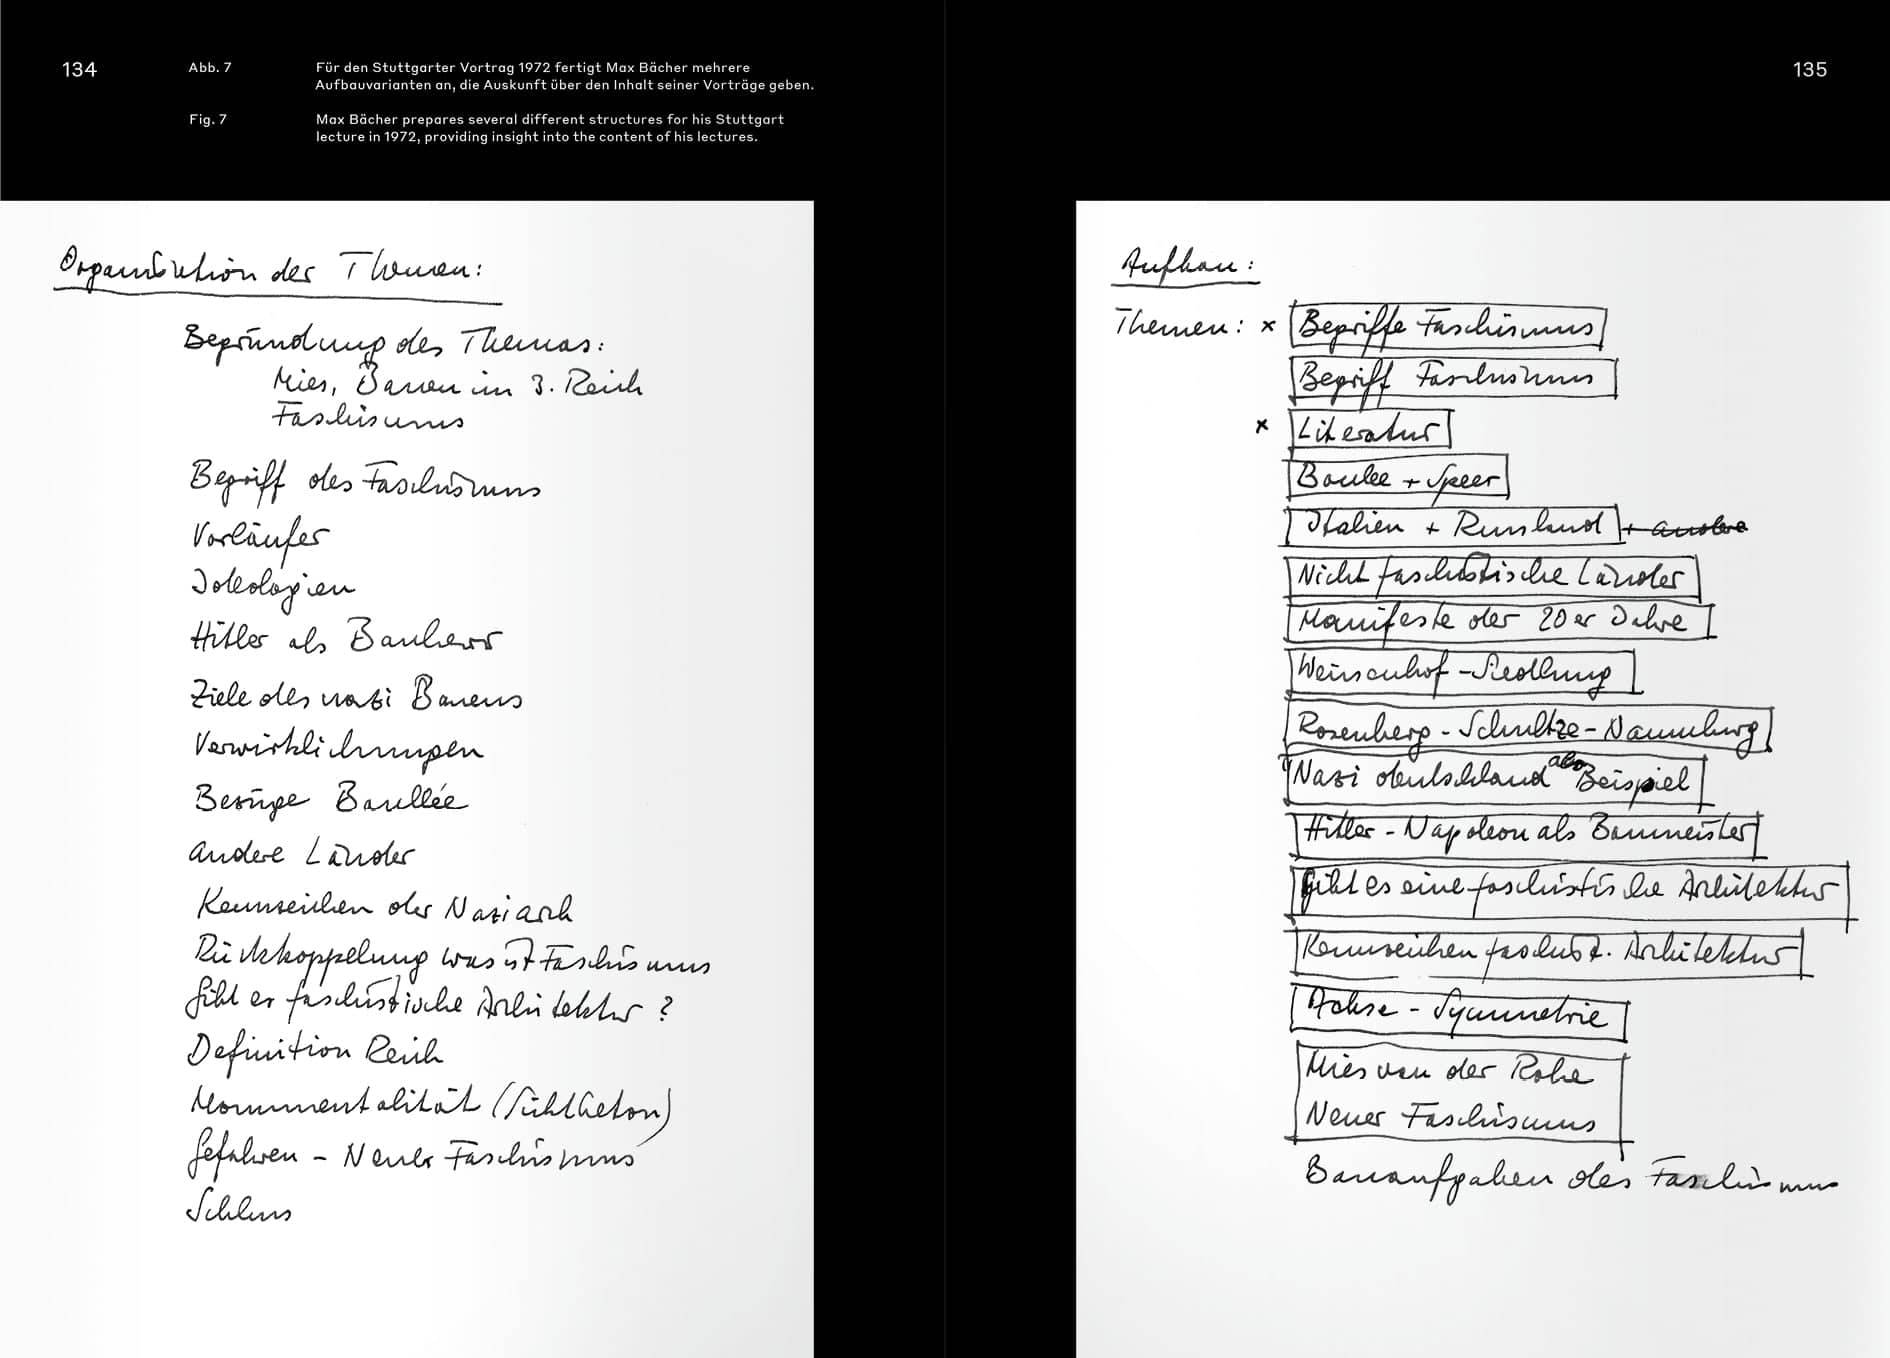 134
Abb. 7
Für den Stuttgarter Vortrag 1972 fertigt Max Bächer mehrere
Aufbauvarianten an, die Auskunft über den Inhalt seiner Vorträge geben.
Fig. 7
Max Bächer prepares several different structures for his Stuttgart
lecture in 1972, providing insight into the content of his lectures.
Organisation der Themen:
Begründung des Themas:
Mies, Bauen im 3. Reich
Faschismus
Begriff des Faschismus
Vorläufer
Ideologien
Hitler als Bauherr
Ziele des nazi Bauens
Verwirklichungen
Bezüge Boullée
andere Länder
Kennzeichen der Naziarch
Rückkoppelung was ist Faschismus
Gibt es faschistische Architektur?
Definition Reich
Monumentalität (Sichtbeton)
Gefahren – Neuer Faschismus
Schluss
135
Aufbau:
Themen: x Begriffe Faschismus
Begriff Faschismus
x Literatur
Boulee + Speer
Italien + Russland + andere
Nicht faschistische Länder
Manifeste der 20er Jahre
Weissenhof-Siedlung
Rosenberg - Schultze-Naumburg
Nazi deutschland als Beispiel
Hitler - Napoleon als Baumeister
Gibt es eine faschistische Architektur
Kennzeichen faschist. Architektur
Achse - Symmetrie
Mies van der Rohe
Neuer Faschismus
Bauaufgaben des Faschismus